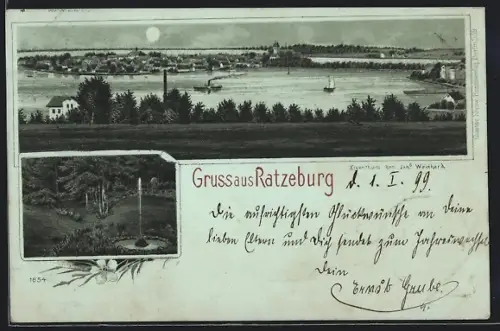 Gruss aus Ratzeburg
d. 1. I. 99.
Die aufrichtigsten Glückwünsche an Deine
lieben Eltern und Dich sendet zum Jahreswechsel
Dein
Ernst Grube.
1634